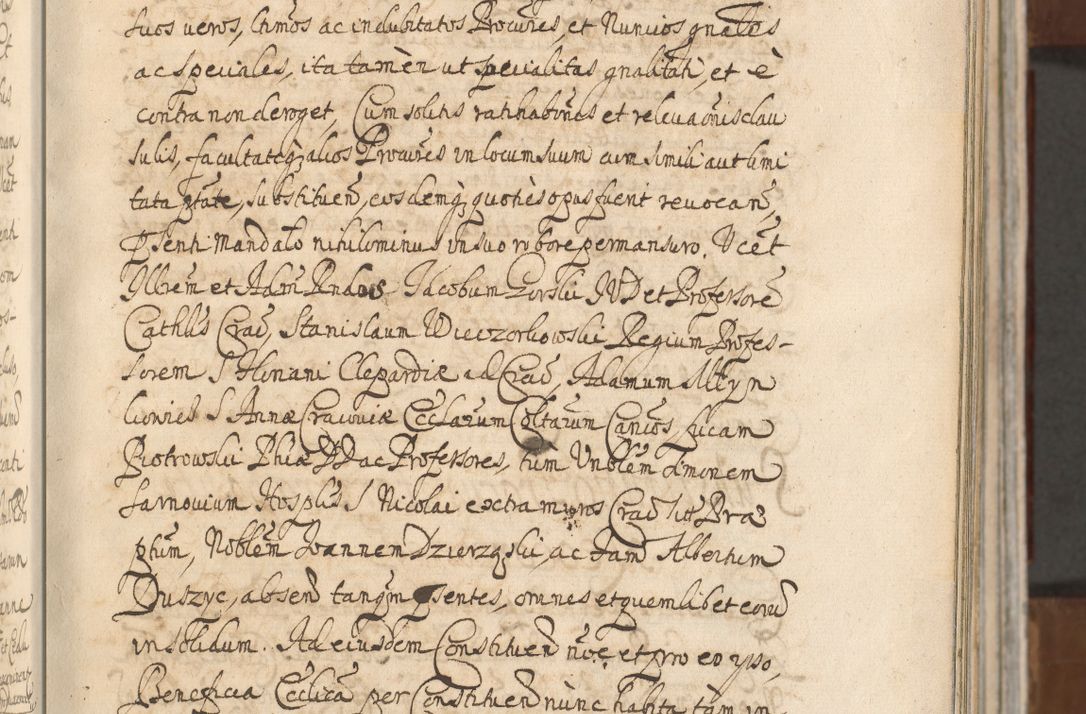 suos veros, Ltimos ac indubitatos Procures, et Nuncios gnales
ac speciales, ita tamèn ut specialitas gnalitati, et è
contra non deroget, Cum solitis ratihabones et relevaonis clau
sulis, facultateq; alios Procures in locum suum cum simili aut limi
tata ptate, substituen, eosdemq; quotiès opus fuerit revocan,
Psenti Mandato nihilominus in suo robore permansuro. Ucet
Illrem et Adm Rndos Jacobum Gorski IVD et Professore
Cathlis Crac, Stanislaum Wieczorkowski Regium Profes-
sorem S Floriani Clepardiæ ad Crac, Adamum
S Annæ Cracoviæ Ecclarum Coltarum Cancos, Lucam
Piotrowski Phiæ DD ac Professores, tum Vnoblem Simonem
Sarnovium Hosplis S Nicolai extra muros Crac Præ
ptum, Noblem Joannem Dzierzgski, ac Fam Albertum
Duszyc, absen tanqm psentes, omnes et quemlibet eoru
in solidum. Ad eiusdem Constituen noe et pro eo ipso,
Beneficia Ecclica per Constituen nùnc habita tam in